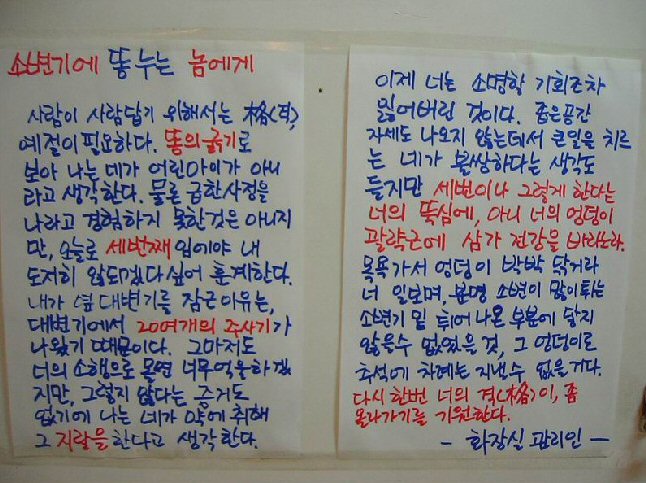 소변기에 똥 누는 놈에게
사람이 사람답기 위해서는 格(격),
예절이 필요하다. 똥의 굵기로
보아 나는 네가 어린아이가 아니
라고 생각한다. 물론 급한사정을
나라고 경험하지 못한것은 아니지
만, 오늘로 세번째 임에야 내
도저히 않되겠다 싶어 훈계한다.
내가 옆 대변기를 잠근 이유는,
대변기에서 20여개의 주사기가
나왔기 때문이다. 그마저도
너의 소행으로 몰면 너무 억울하겠
지만, 그렇지 않다는 증거도
없기에 나는 네가 약에 취해
그 지랄을 한다고 생각한다.
이제 너는 소명할 기회조차
잃어버린 것이다. 좁은공간
자세도 나오지 않는데서 큰일을 치르
는 네가 불쌍하다는 생각도
들지만 세번이나 그렇게 한다는
너의 뚝심에, 아니 너의 엉덩이
괄략근에 삼가 건강을 바라노라.
목욕가서 엉덩이 박박 닦거라
너 일보며, 분명 소변이 많이튀는
소변기 밑 튀어 나온 부분에 닿지
않을수 없었을 것, 그 엉덩이로
추석에 차례는 지낼수 없을거다.
다시 한번 너의 격(格)이, 좀
올라가기를 기원한다.
- 화장실 관리인 -